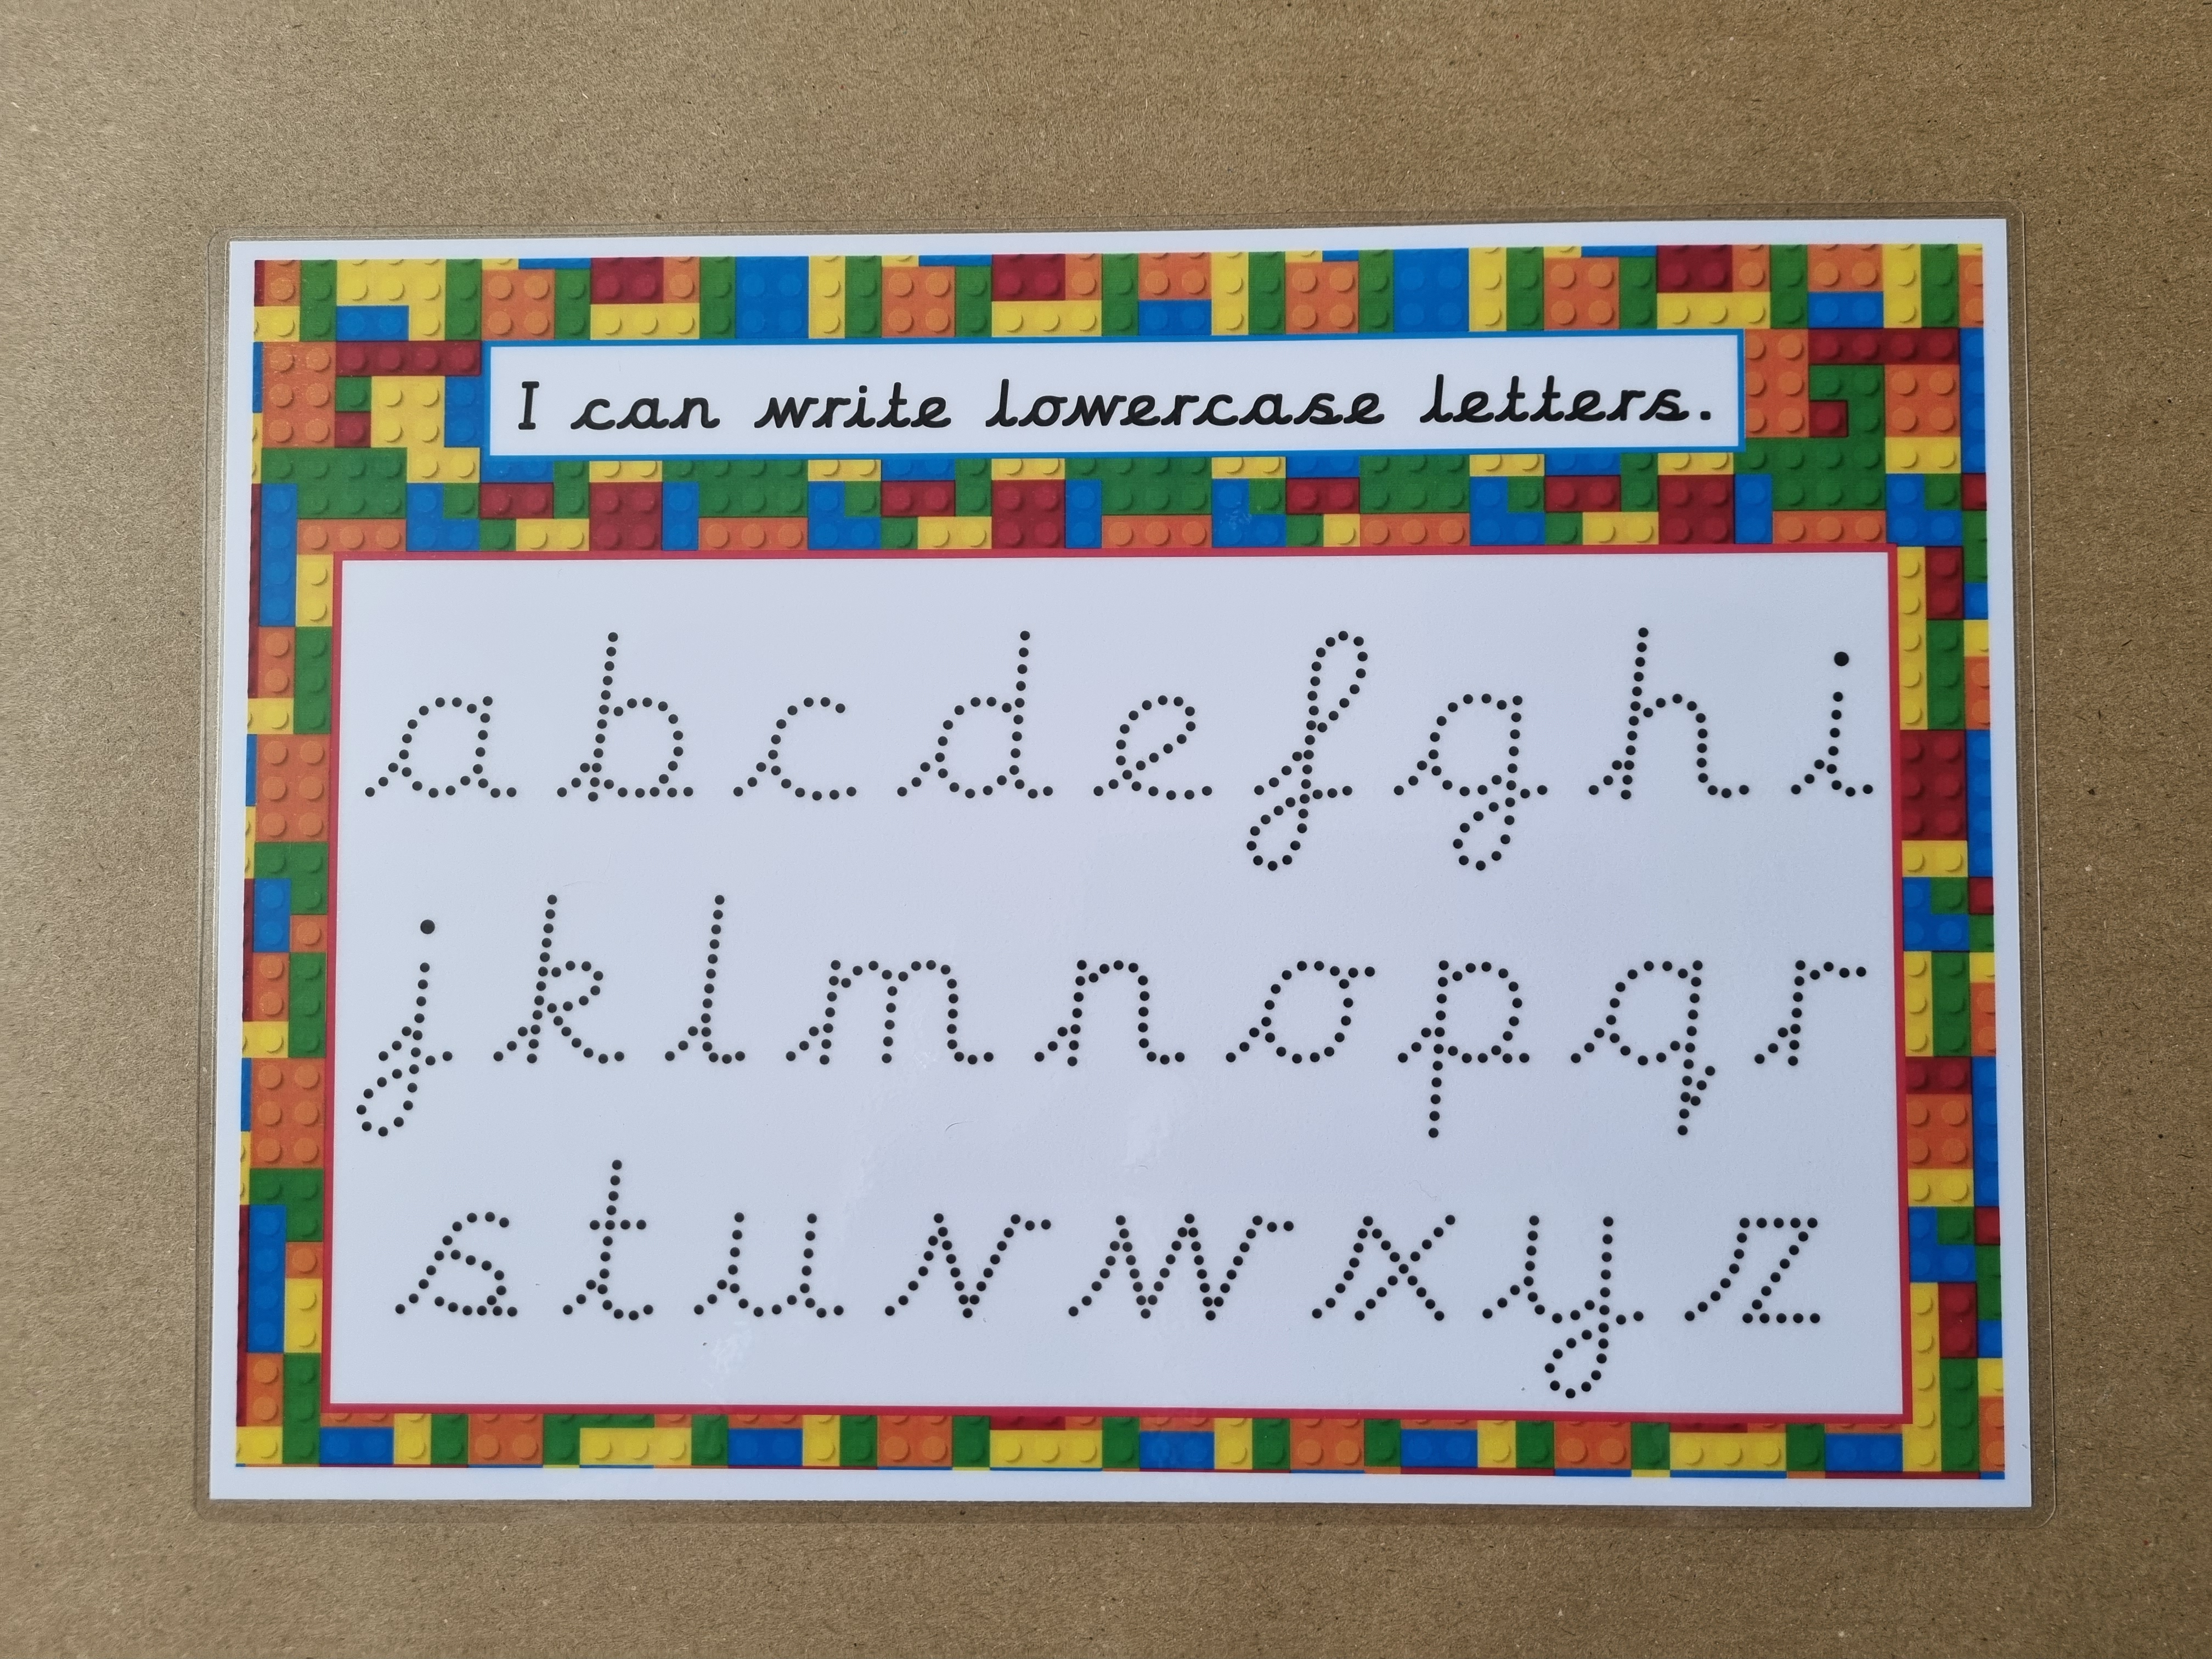 I can write lowercase letters.
a b c d e f g h i
j k l m n o p q r
s t u v w x y z